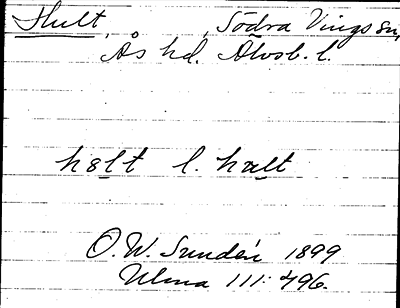 Hult, , Södra Vings sn,
Ås hd. Älvsb. l.
hɞlt l. hɷlt
O. W. Sundén 1899
Ulma 111:496.